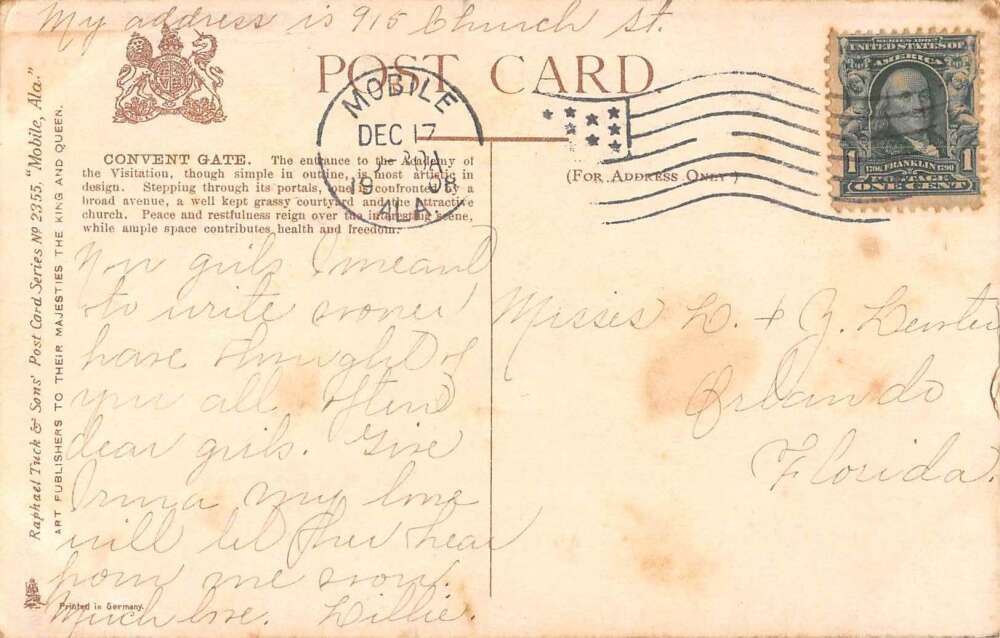 My address is 915 Church St.
POST CARD
MOBILE
DEC 17
19 06
ALA.
SERIES 1902
UNITED STATES OF
AMERICA
FRANKLIN
POSTAGE
1 1
ONE CENT
(FOR ADDRESS ONLY)
CONVENT GATE. The entrance to the Academy of
the Visitation, though simple in outline, is most artistic in
design. Stepping through its portals, one is confronted by a
broad avenue, a well kept grassy courtyard and the attractive
church. Peace and restfulness reign over the interesting scene,
while ample space contributes health and freedom.
Raphael Tuck & Sons' Post Card Series No 2355, "Mobile, Ala."
ART PUBLISHERS TO THEIR MAJESTIES THE KING AND QUEEN.
girls I meant
to write sooner
have thought of
you all often
dear girls. Give
Irma my love
will let her hear
from me soon.
Much love. Lillie.
Misses L. & Z.
Orlando
Florida.
Printed in Germany.